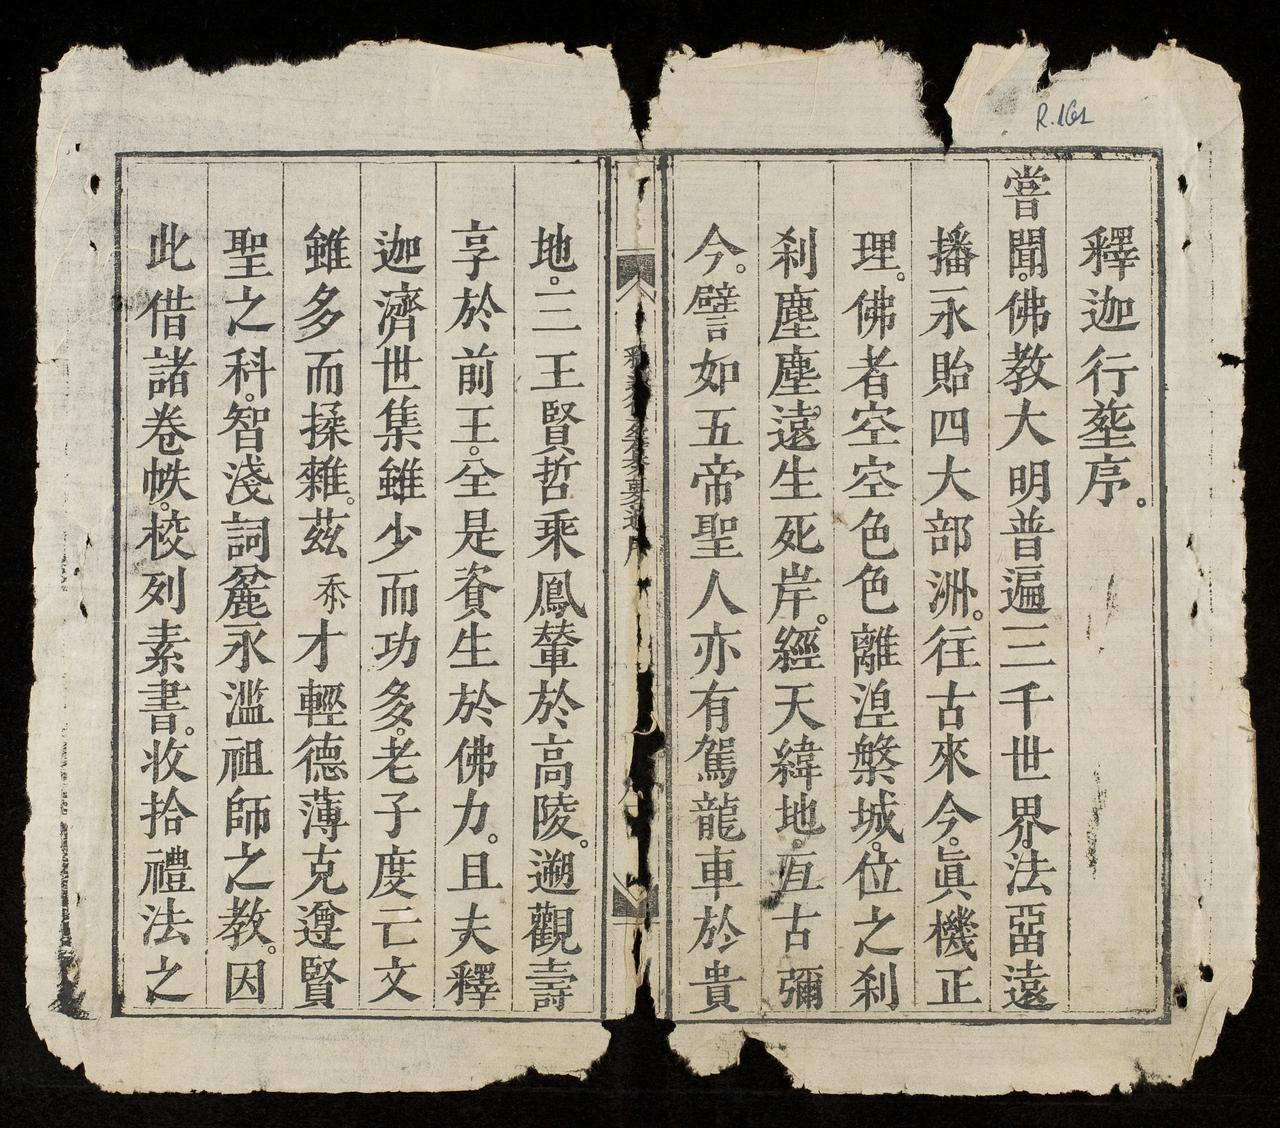 R.161
釋迦行塟序。
嘗聞。佛教大明普遍三千世界法畱遠
播永貽四大部洲。往古來今。眞機正
理。佛者空空色色離湼槃城。位之刹
刹塵塵。遠生死岸。經天緯地。亙古彌
今。譬如五帝聖人亦有駕龍車於貴
地。三王賢哲乘鳳輦於高陵。遡觀壽
享於前王。全是資生於佛力。且夫釋
迦濟世集雖少而功多。老子度亡文
雖多而揉雜。茲忝才輕德薄克遵賢
聖之科。智淺詞麄永濫祖師之教。因
此借諸卷帙。校列素書。收拾禮法之